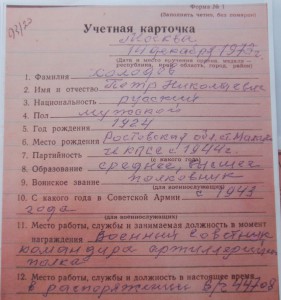 Форма № 1
(Заполнять четко, без помарок)
93/20
Учетная карточка
Москва
14 декабря 1973 г.
(Дата и место вручения медали —
республика, край, область, город, район)
1. Фамилия Солодов
2. Имя и отчество Петр Николаевич
3. Национальность русский
4. Пол мужской
5. Год рождения 1924
6. Место рождения Ростовская обл.
7. Партийность член КПСС с 1944 г.
(с какого года)
8. Образование среднее, высшее
9. Воинское звание полковник
(для военнослужащих)
10. С какого года в Советской Армии с 1943
года
(для военнослужащих)
11. Место работы, службы и занимаемая должность в момент
награждения Военный советник
командира артиллерийского
полка
12. Место работы, службы и должность в настоящее время
в распоряжении в/ч 44708